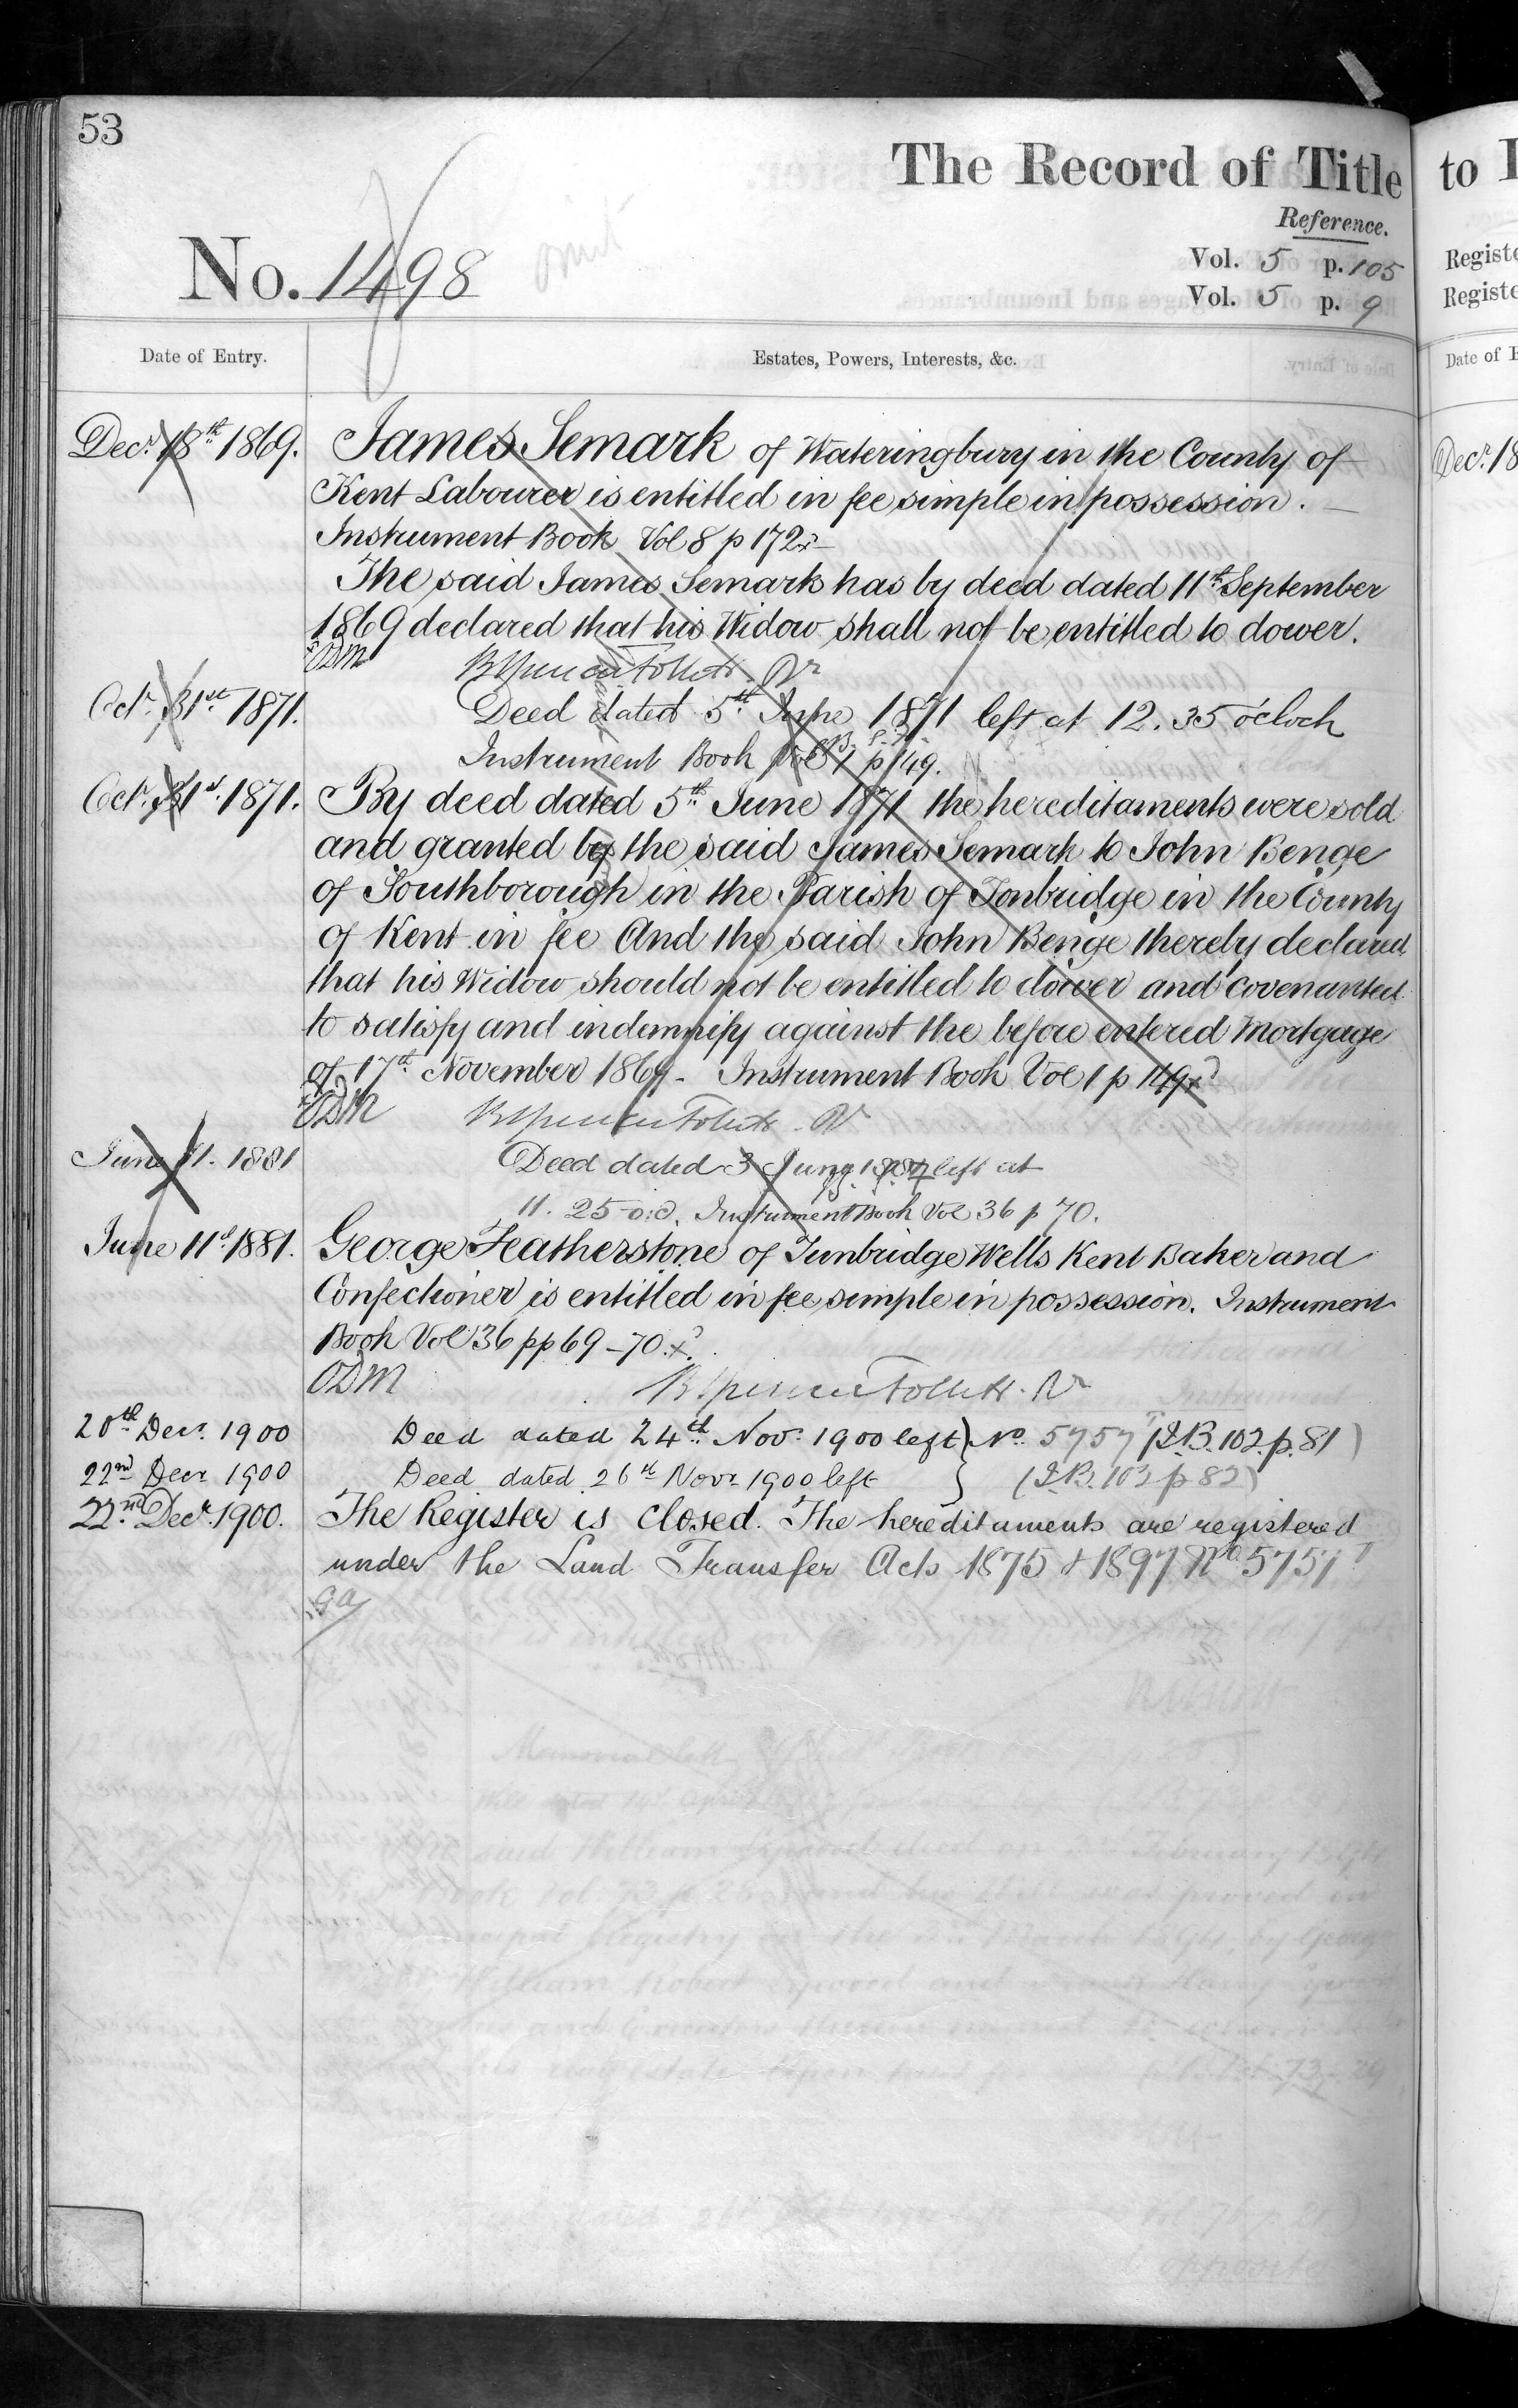 53
The Record of Title
to
Reference.
No. 1498
omit
Vol. 5 p. 105
Vol. 5 p. 9
Registe
Registe
Date of Entry.
Estates, Powers, Interests, &c.
Date of E
Decr. 18th 1869.
James Semark of Wateringbury in the County of
Kent Labourer is entitled in fee simple in possession.
Instrument Book Vol 8 p 172
The said James Semark has by deed dated 11th September
1869 declared that his Widow shall not be entitled to dower.
ODM
Decr. 18
Octr. 31st 1871.
Deed dated 5th June 1871 left at 12.35 o'clock
Instrument Book Vol 1 p 149.
Octr. 31st. 1871.
By deed dated 5th June 1871 the hereditaments were sold
and granted by the said James Semark to John Benge
of Southborough in the Parish of Tonbridge in the County
of Kent in fee And the said John Benge thereby declared
that his Widow should not be entitled to dower and covenanted
to satisfy and indemnify against the before entered Mortgage
of 17th November 1869 - Instrument Book Vol 1 p 149
ODM
June 11. 1881
Deed dated 3 June left at
11. 25 Instrument Book Vol 36 p 70.
June 11th 1881.
George Featherstone of Tunbridge Wells Kent Baker and
Confectioner is entitled in fee simple in possession. Instrument
Book Vol 36 pp 69-70.
ODM
20th Decr. 1900
Deed dated 24th Novr. 1900 left } No. 5757 (I.B. 102 p. 81)
22nd Decr 1900
Deed dated 26th Novr 1900 left } (I.B. 102 p 82)
22nd Decr. 1900.
The Register is closed. The hereditaments are registered
under the Land Transfer Acts 1875 & 1897 No 5757